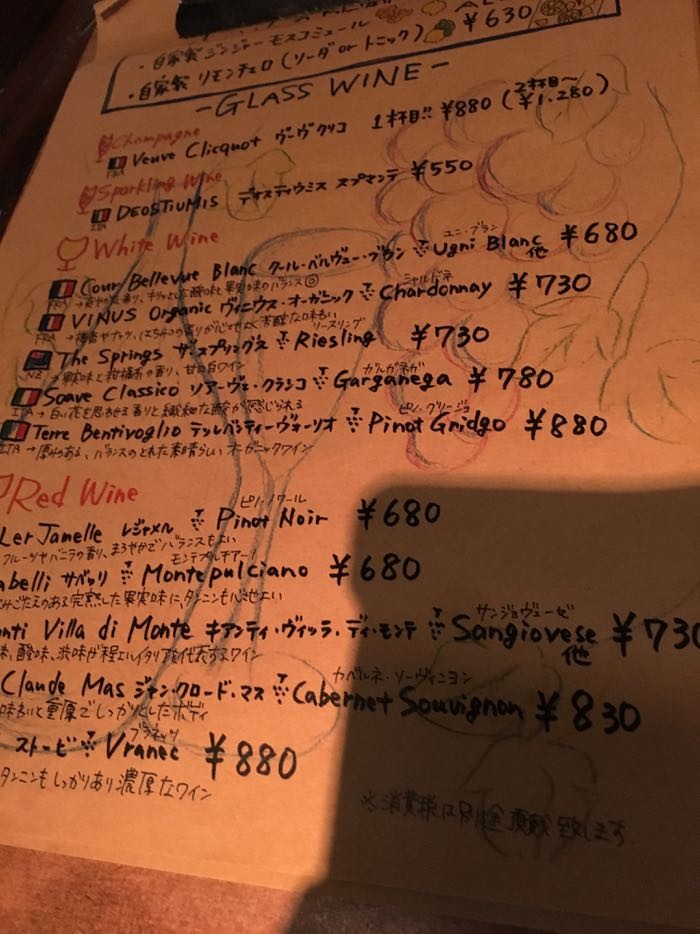 ・自家製 ジンジャーモスコミュール
¥630
・自家製 リモンチェロ (ソーダ or トニック)
-GLASS WINE-
Champagne
FRA Veuve Clicquot ヴーヴクリコ 1杯目!! ¥880 (2杯目~ ¥1.280)
Sparkling Wine
ITA DEOSTiUMIS デオスティウミス スプマンテ ¥550
White Wine
Cour Bellevue Blanc クール・ベルヴュー・ブラン Ugni Blanc 他 ユニ・ブラン ¥680
FRA
ViNUS Organic ヴィニウス・オーガニック Chardonnay シャルドネ ¥730
FRA
The Springs ザ・スプリングス Riesling リースリング ¥730
NZ → 果実味と柑橘系の香り、甘口白ワイン
Soave Classico ソアーヴェ・クラシコ Garganega ガルガネガ ¥780
ITA → 白い花を思わせる香りと繊細な酸が感じられる
Terre Bentivoglio テッレ・ベンティーヴォーリオ Pinot Gridgo ピノ・グリージョ ¥880
ITA → 厚みのある、バランスのとれた素晴らしいオーガニックワイン
Red Wine
Ler Jamelle レジャメル Pinot Noir ピノ・ノワール ¥680
フルーツやバニラの香り、まろやかでバランスもよい
abelli サバッリ Montepulciano モンテプルチアーノ ¥680
ごたえのある完熟した果実味に、タンニンも心地よい
nti Villa di Monte キアンティ・ヴィッラ・ディ・モンテ Sangiovese 他 サンジョヴェーゼ ¥730
味、酸味、渋味が程よいイタリアを代表するワイン
Claude Mas ジャン・クロード・マス Cabernet Souvignon カベルネ・ソーヴィニヨン ¥830
味わいと重厚でしっかりとしたボディ
ストービ Vranec ブラネッツ ¥880
タンニンもしっかりあり濃厚なワイン
※消費税は別途頂戴致します